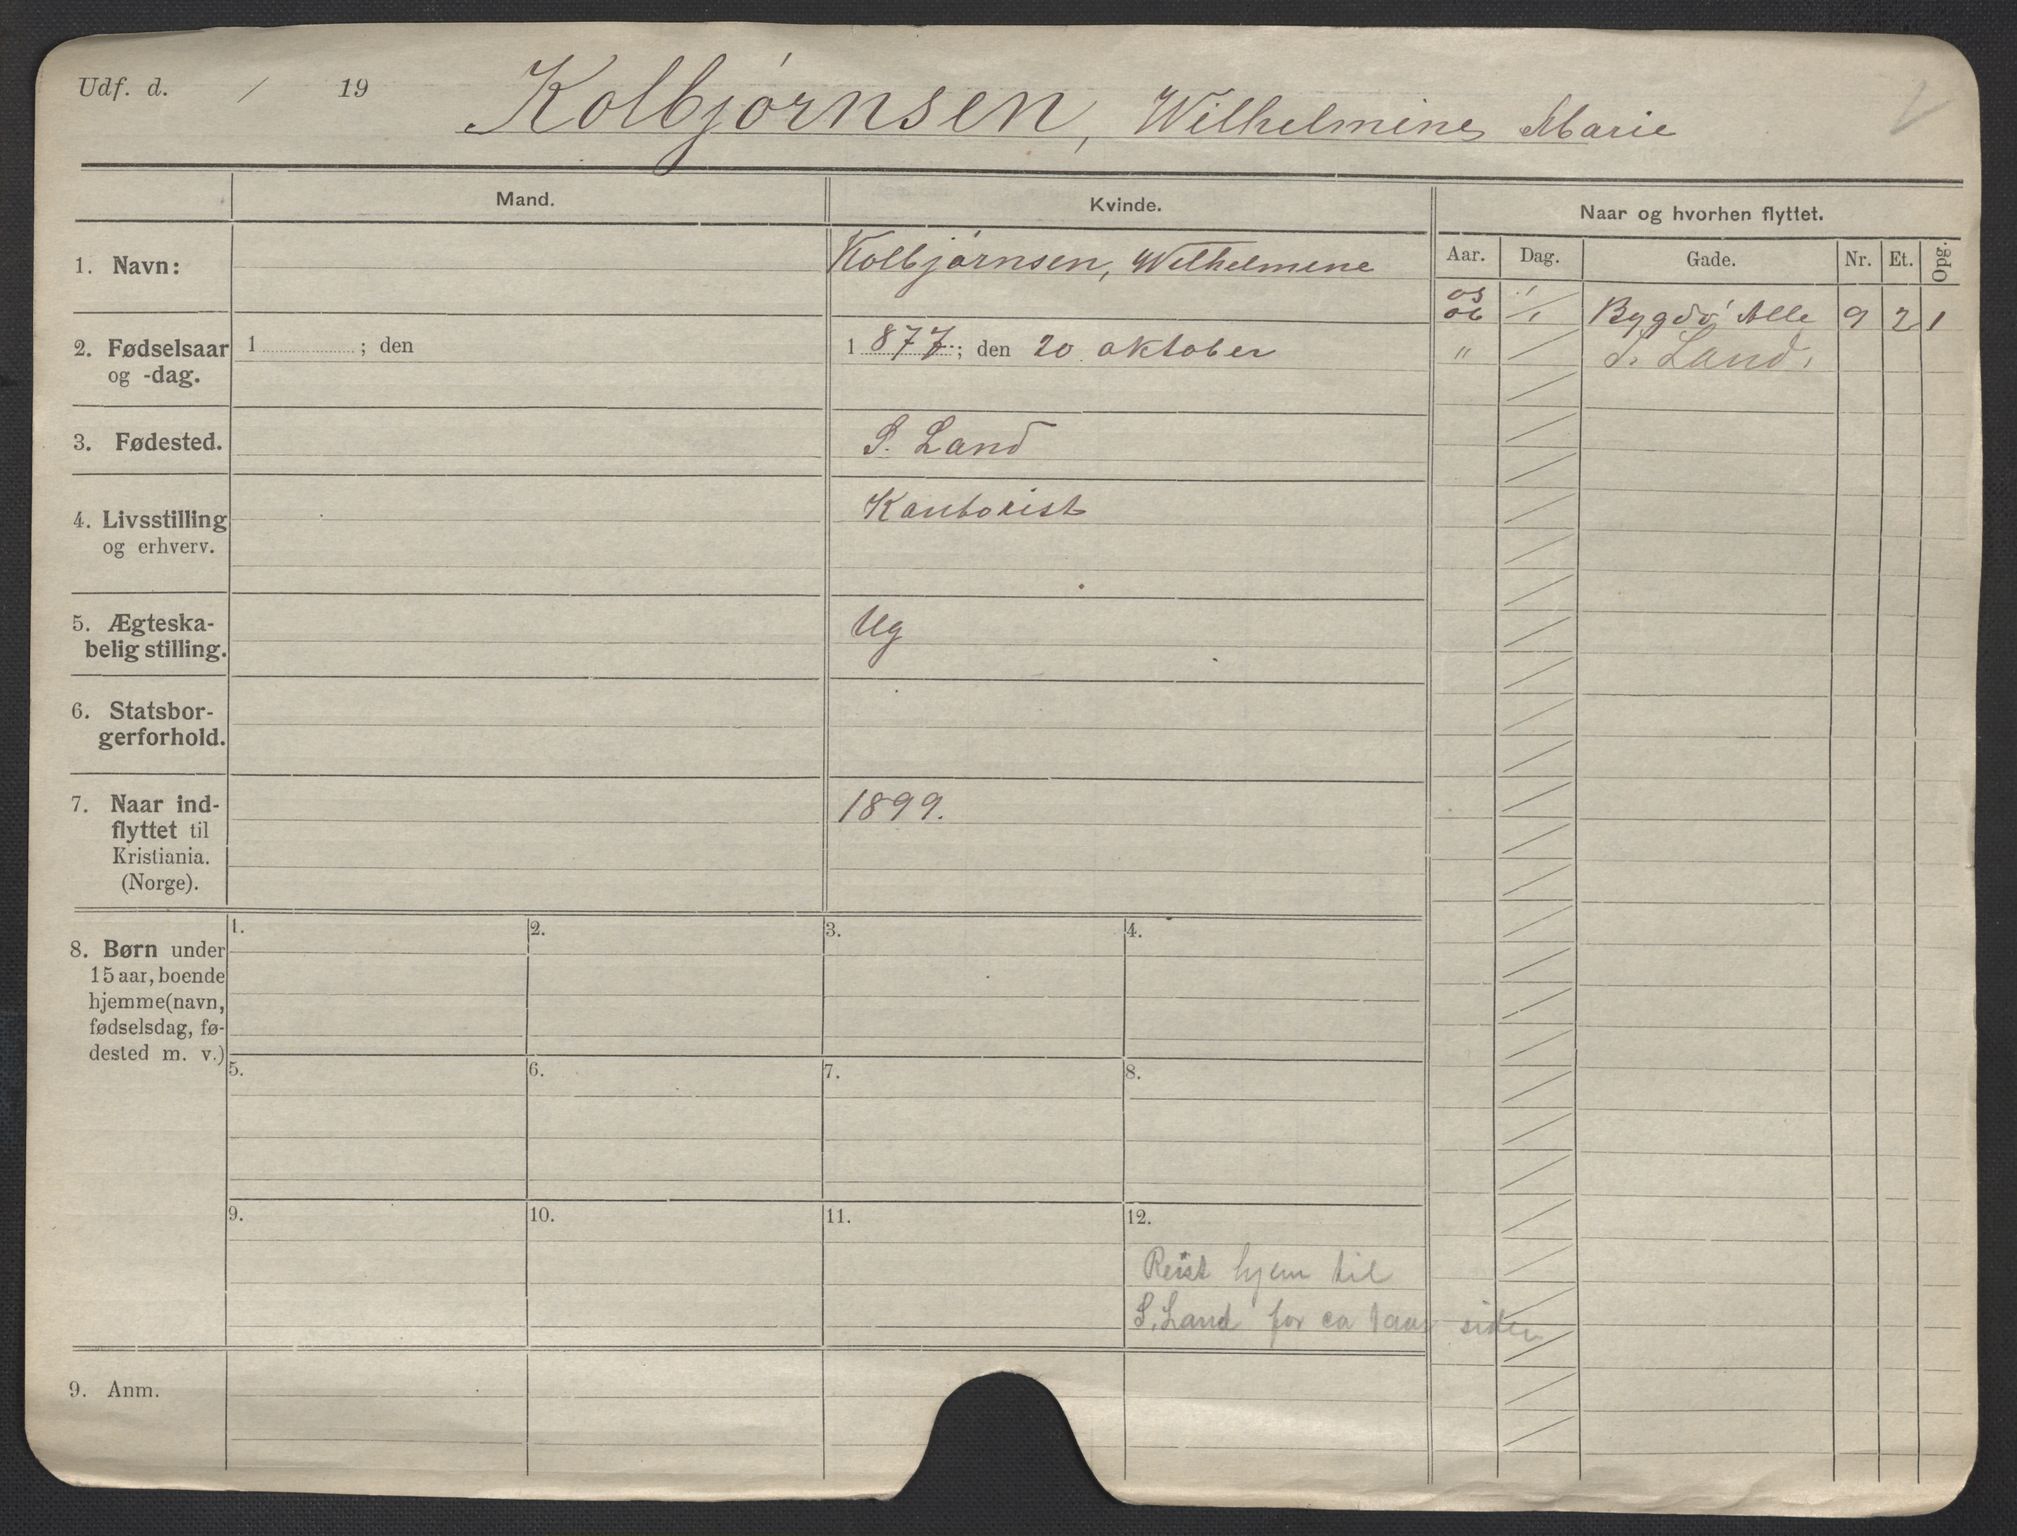 Udf. d. / 19 Kolbjørnsen, Wilhelmine Marie
Mand. Kvinde. Naar og hvorhen flyttet.
Aar. Dag. Gade. Nr. Et. Opg.
1. Navn: Kolbjørnsen, Wilhelmine
05
06 1/1 Bygdø Alle 9 2 1
2. Fødselsaar 1 ; den 1 877 ; den 20 oktober
og -dag.
" S. Land.
3. Fødested. S. Land
4. Livsstilling Kontorist
og erhverv.
5. Ægteska- Ug
belig stilling.
6. Statsbor-
gerforhold.
7. Naar ind- 1899.
flyttet til
Kristiania.
(Norge).
8. Børn under
15 aar, boende
hjemme (navn,
fødselsdag, fø-
dested m. v.)
1. 2. 3. 4.
5. 6. 7. 8.
9. 10. 11. 12.
Reist hjem til
S. Land for ca 1 aar siden
9. Anm.